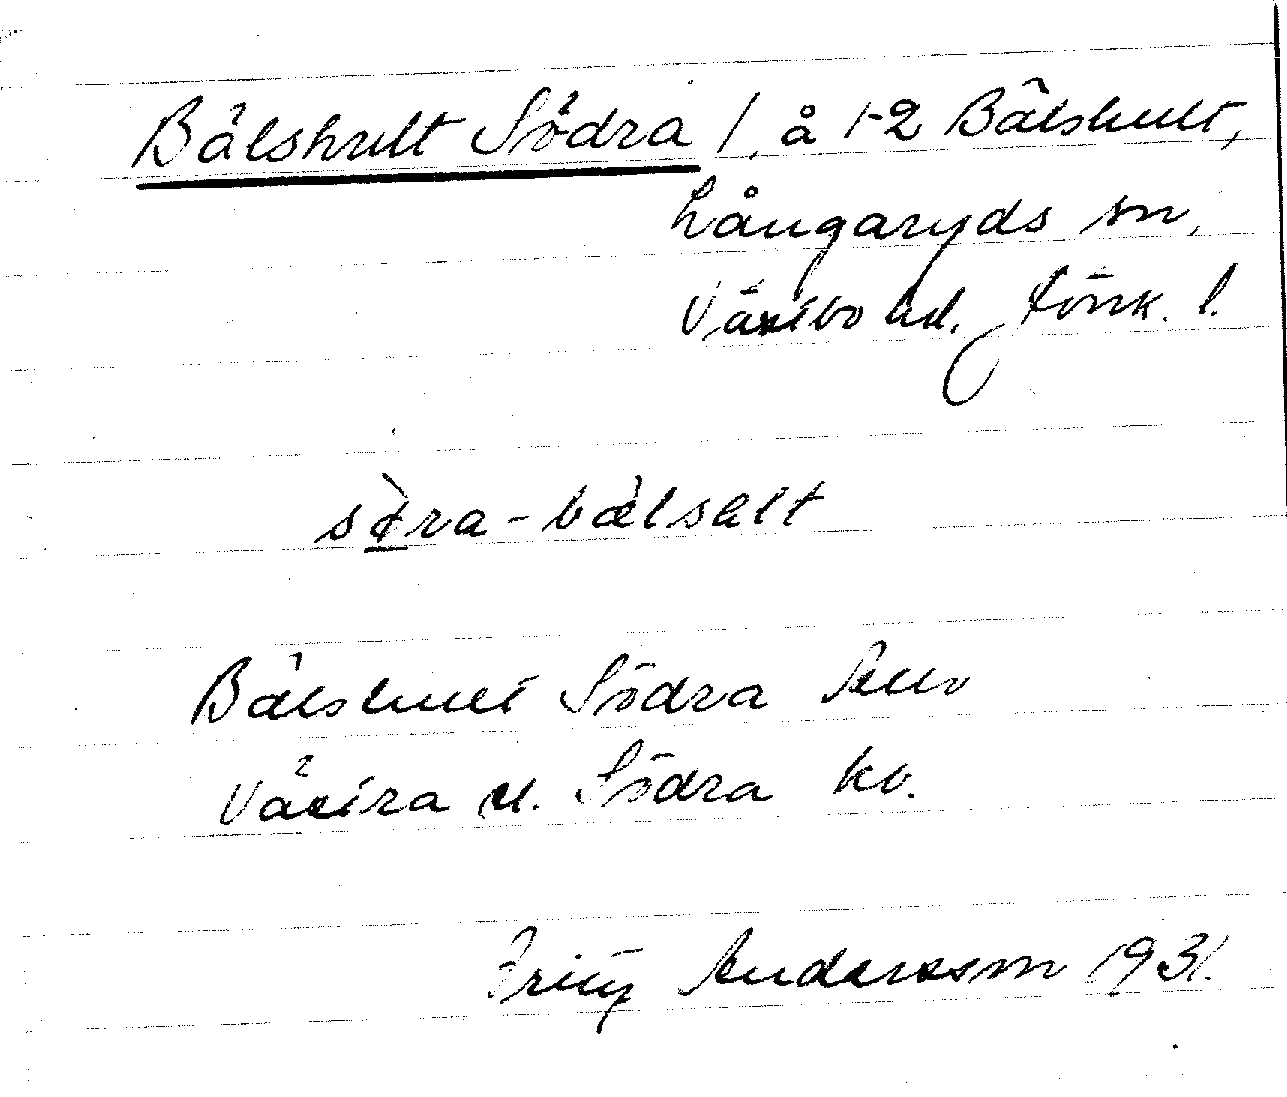 Bälshult Södra 1, å 1-2 Bälshult,
Långaryds sn,
Västbo hd. Jönk. l.
sø̀ra-bæ̀lsalt
Bälshult Södra
Västra o. Södra kv.
Andersson 1931.